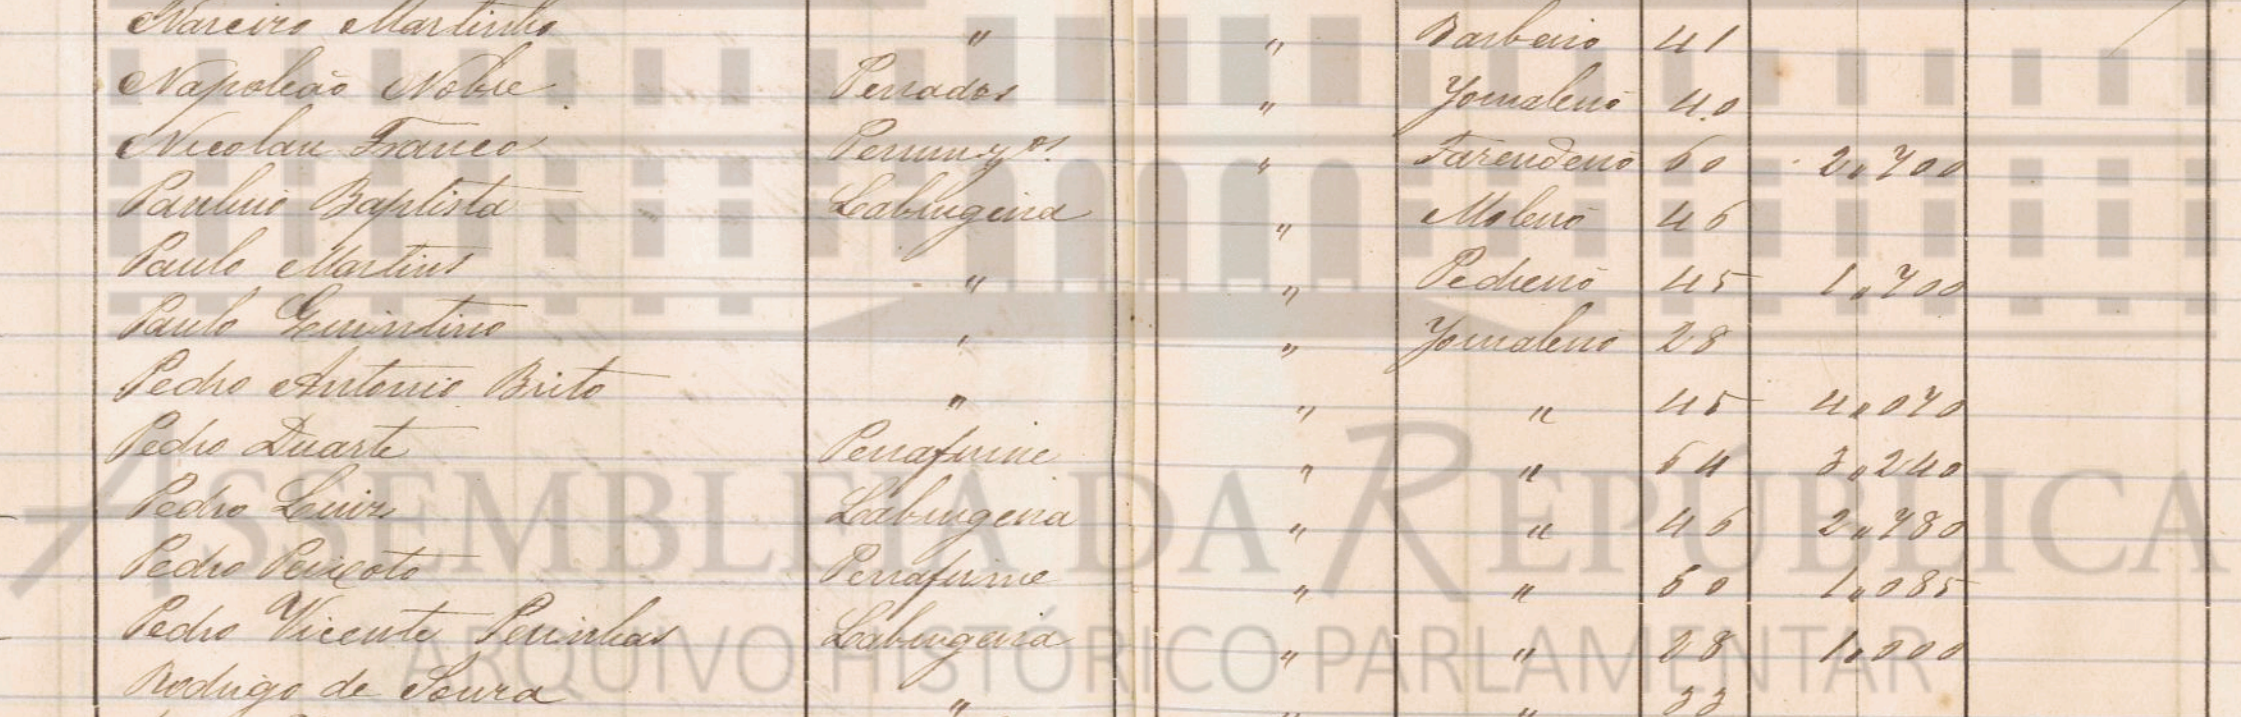 Narciro Martinho " " Barbeiro 41
Napoleão Nobre Penados " Jornaleiro 40
Nicolau Franco " Fazendeiro 60 2,,700
Paulino Baptista Labrugeira " Moleiro 46
Paulo Martins " " Pedreiro 45 1,,700
Paulo Quintino " " Jornaleiro 28
Pedro Antonio Brito " " " 45 4,,070
Pedro Duarte Penafirme " " 64 3,,240
Pedro Luiz Labrugeira " " 46 2,,780
Pedro Peixoto Penafirme " " 60 1,,085
Pedro Vicente Perinhas Labrugeira " " 28 1,,000
Rodrigo de Soura " " " 33
ASSEMBLEIA DA REPÚBLICA
ARQUIVO HISTÓRICO PARLAMENTAR